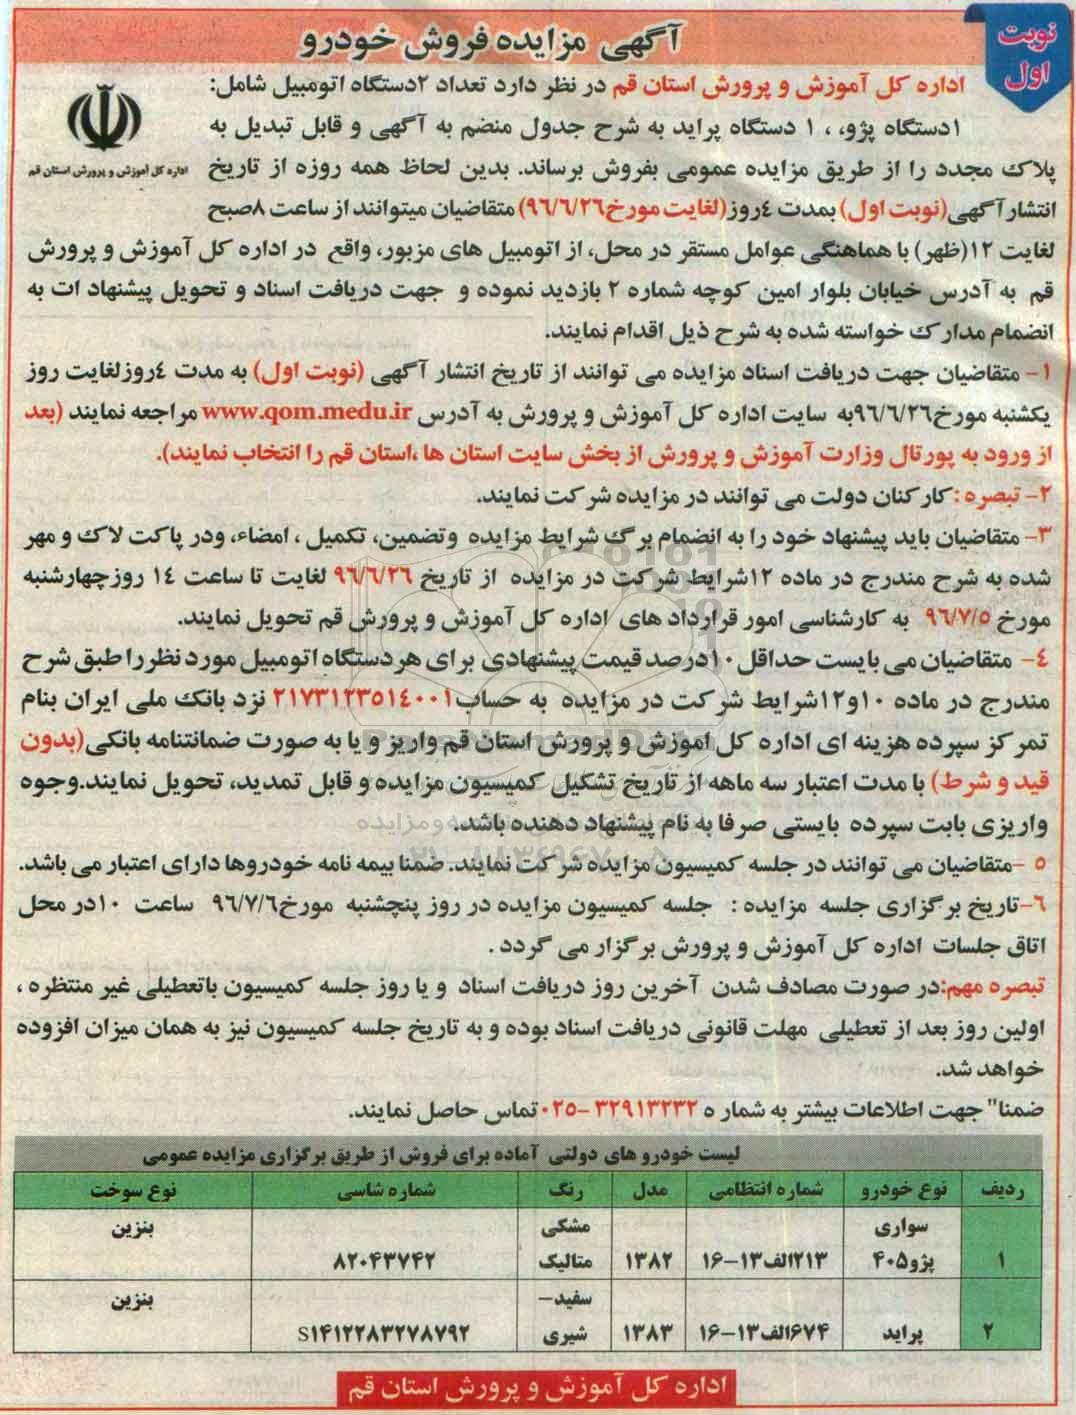 نوبت
اول
آگهی مزایده فروش خودرو
اداره کل آموزش و پرورش استان قم
اداره کل آموزش و پرورش استان قم در نظر دارد تعداد ۲دستگاه اتومبیل شامل:
۱دستگاه پژو، ، ۱ دستگاه پراید به شرح جدول منضم به آگهی و قابل تبدیل به
پلاک مجدد را از طریق مزایده عمومی بفروش برساند. بدین لحاظ همه روزه از تاریخ
انتشارآگهی(نوبت اول) بمدت ٤روز(لغایت مورخ۹٦/٦/۲٦) متقاضیان میتوانند از ساعت ۸صبح
لغایت ۱۲(ظهر) با هماهنگی عوامل مستقر در محل، از اتومبیل های مزبور، واقع در اداره کل آموزش و پرورش
قم به آدرس خیابان بلوار امین کوچه شماره ۲ بازدید نموده و جهت دریافت اسناد و تحویل پیشنهاد ات به
انضمام مدارک خواسته شده به شرح ذیل اقدام نمایند.
۱- متقاضیان جهت دریافت اسناد مزایده می توانند از تاریخ انتشار آگهی (نوبت اول) به مدت ٤روزلغایت روز
یکشنبه مورخ۹٦/٦/۲٦به سایت اداره کل آموزش و پرورش به آدرس www.qom.medu.ir مراجعه نمایند (بعد
از ورود به پورتال وزارت آموزش و پرورش از بخش سایت استان ها ،استان قم را انتخاب نمایند).
۲- تبصره :کارکنان دولت می توانند در مزایده شرکت نمایند.
۳- متقاضیان باید پیشنهاد خود را به انضمام برگ شرایط مزایده وتضمین، تکمیل ، امضاء، ودر پاکت لاک و مهر
شده به شرح مندرج در ماده ۱۲شرایط شرکت در مزایده از تاریخ ۹٦/٦/۲٦ لغایت تا ساعت ۱٤ روزچهارشنبه
مورخ ۹٦/۷/۵ به کارشناسی امور قرارداد های اداره کل آموزش و پرورش قم تحویل نمایند.
٤- متقاضیان می بایست حداقل۱۰درصد قیمت پیشنهادی برای هردستگاه اتومبیل مورد نظررا طبق شرح
مندرج در ماده ۱۰و۱۲شرایط شرکت در مزایده به حساب۲۱۷۳۱۲۳۵۱٤۰۰۱ نزد بانک ملی ایران بنام
تمرکز سپرده هزینه ای اداره کل اموزش و پرورش استان قم واریز و یا به صورت ضمانتنامه بانکی(بدون
قید و شرط) با مدت اعتبار سه ماهه از تاریخ تشکیل کمیسیون مزایده و قابل تمدید، تحویل نمایند.وجوه
واریزی بابت سپرده بایستی صرفا به نام پیشنهاد دهنده باشد.
۵ -متقاضیان می توانند در جلسه کمیسیون مزایده شرکت نمایند. ضمنا بیمه نامه خودروها دارای اعتبار می باشد.
٦-تاریخ برگزاری جلسه مزایده : جلسه کمیسیون مزایده در روز پنچشنبه مورخ۹٦/۷/٦ ساعت ۱۰در محل
اتاق جلسات اداره کل آموزش و پرورش برگزار می گردد .
تبصره مهم:در صورت مصادف شدن آخرین روز دریافت اسناد و یا روز جلسه کمیسیون باتعطیلی غیر منتظره ،
اولین روز بعد از تعطیلی مهلت قانونی دریافت اسناد بوده و به تاریخ جلسه کمیسیون نیز به همان میزان افزوده
خواهد شد.
ضمنا" جهت اطلاعات بیشتر به شمار ه ۳۲۹۱۳۲۳۲-۰۲۵تماس حاصل نمایند.
لیست خودرو های دولتی آماده برای فروش از طریق برگزاری مزایده عمومی
ردیف نوع خودرو شماره انتظامی مدل رنگ شماره شاسی نوع سوخت
۱ سواری پژو۴۰۵ ۲۱۳الف۱۳-۱۶ ۱۳۸۲ مشکی متالیک ۸۲۰۴۳۷۴۲ بنزین
۲ پراید ۶۷۴الف۱۳-۱۶ ۱۳۸۳ سفید- شیری S۱۴۱۲۲۸۳۲۷۸۷۹۲ بنزین
اداره کل آموزش و پرورش استان قم